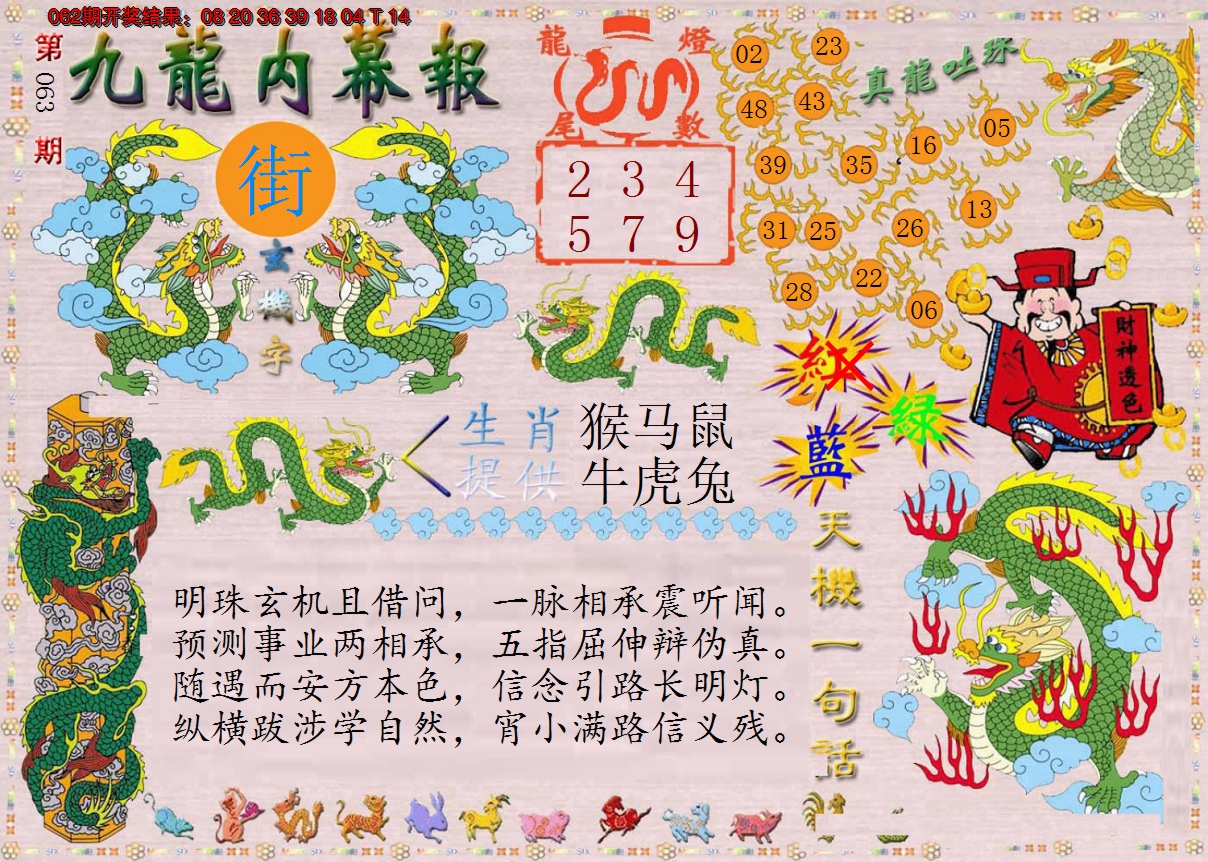 062期开奖结果：08 20 36 39 18 04 T 14
第063期
九龍内幕報
街
玄機字
龍燈尾數
2 3 4
5 7 9
真龍吐珠
02 23
48 43
39 35 16 05
31 25 26 13
28 22 06
財神透色
紅
綠
藍
生肖提供
猴马鼠
牛虎兔
天機一句话
明珠玄机且借问，一脉相承震听闻。
预测事业两相承，五指屈伸辩伪真。
随遇而安方本色，信念引路长明灯。
纵横跋涉学自然，宵小满路信义残。